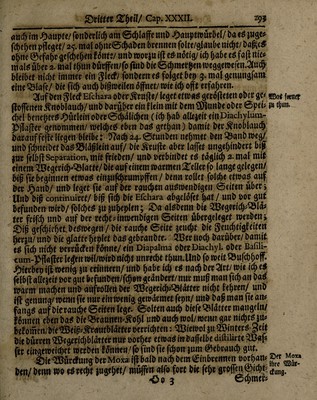 Dritter Theil / Cap. XXXII. 293
auch im Haupte / sonderlich am Schlaffe und Hauptwürbel / da es zuge-
schehen pfleget / 25. mal ohne Schaden brennen solte / glaube nicht / daß es
ohne Gefahr geschehen könte / und worzu ist es nötig / ich habe es fast nie-
mals über 2. mal thun dürffen / so sind die Schmertzen weg gewesen. Auch
bleibet nicht immer ein Fleck / sondern es folget bey 3. mal genungsam
eine Blase / die sich auch bißweilen öffnet / wie ich offt erfahren.
Auf den Fleck Eschara oder Kruste / leget etwas geröstelten oder ge-
stossenen Knoblauch / und darüber ein klein mit dem Munde oder Spei-
chel benetztes Hütlein oder Schälichen (ich hab allezeit ein Diachylum-
Pflaster genommen / welches eben das gethan) damit der Knoblauch
darauf feste liegen bleibe: Nach 24. Stunden nehmet den Band weg /
und schneidet das Bläßlein auf / die Kruste aber lasset ungehindert biß
zur selbst Separation, mit frieden / und verbindet es täglich 2. mal mit
einem Wegerich-Blätte / die auf einem warmen Teller so lange gelegen /
biß sie beginnen etwas einzuschrumpffen / denn roller solche etwas auf
der Hand / und leget sie auf der rauchen auswendigen Seiten über;
Und diß continuiret / biß sich die Eschara abgelöset hat / und vor gut
befunden wird / solches zu zuheylen: Da alsdenn die Wegerich-Blät-
ter frisch und auf der rechten inwendigen Seiten übergeleget werden;
Diß geschiehet deswegen / die rauche Seite zeucht die Feuchtigkeiten
herzu / und die glatte heylet das gebrandte. Wer noch darüber / damit
es sich nicht verrücken könne / ein Diapalma oder Diachyl. oder Basili-
cum-Pflaster legen wil / wird nicht unrecht thun. Und so weit Buschoff.
Hierbey ist wenig zu erinnern / und habe ich es nach der Art / wie ich es
selbst allezeit vor gut befunden / schon geändert / nur muß man sich an das
warm machen und aufrollen der Wegerich-Blätter nicht kehren / und
ist genung / wenn sie nur ein wenig gewärmet seyn / und daß man sie an-
fangs auf die rauche Seiten lege. Solten auch diese Blätter mangeln /
können eben das die Braunen-Kohl und auch wol / wenn gar nichts zu-
bekommen / die Weiß-Krautblätter verrichten: Wiewol zu Winters-Zeit
die dürren Wegerichblätter nur vorher etwas in dasselbe distilirte Was-
ser eingeweichet werden können / so sind sie schon zum Gebrauch gut.
Die Würckung der Moxa ist bald nach dem Einbrennen vorhan-
den / denn wo es recht zugehet / müssen also fort die sehr grossen Gicht-
Oo 3 Schmer-
Was ferner
zu thun.
Der Moxa
ihre Wür-
ckung.